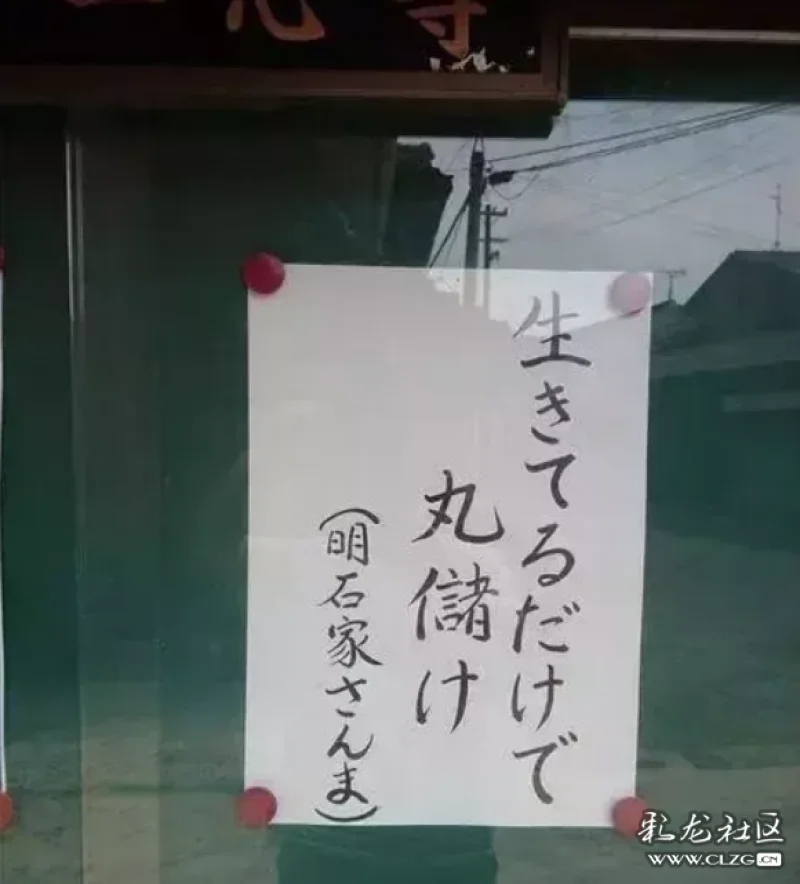 生きてるだけで
丸儲け
(明石家さんま)
彩龙社区
WWW.CLZG.CN